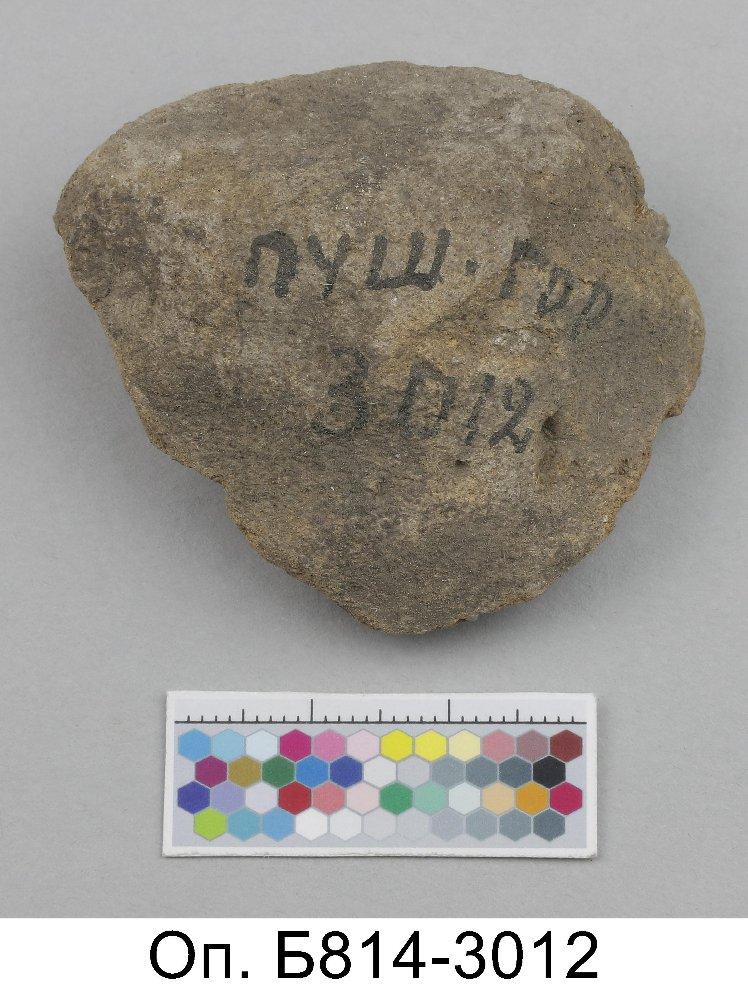 ПУШ. ГОР
3012
Оп. Б814-3012